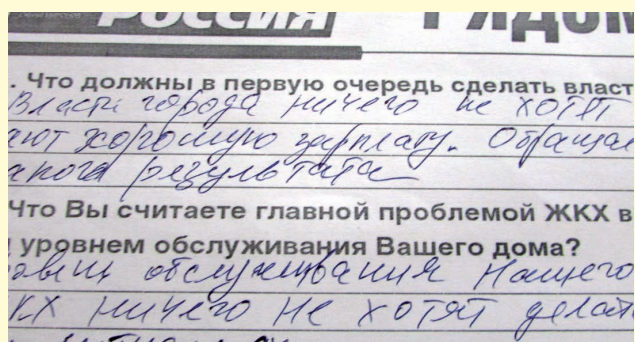 Россия РЯДОМ
. Что должны в первую очередь сделать власт
Власти города ничего не хотят
ают хорошую зарплату. Обращал
акого результата
Что Вы считаете главной проблемой ЖКХ в
уровнем обслуживания Вашего дома?
обслуживания нашего
КХ ничего не хотят делать